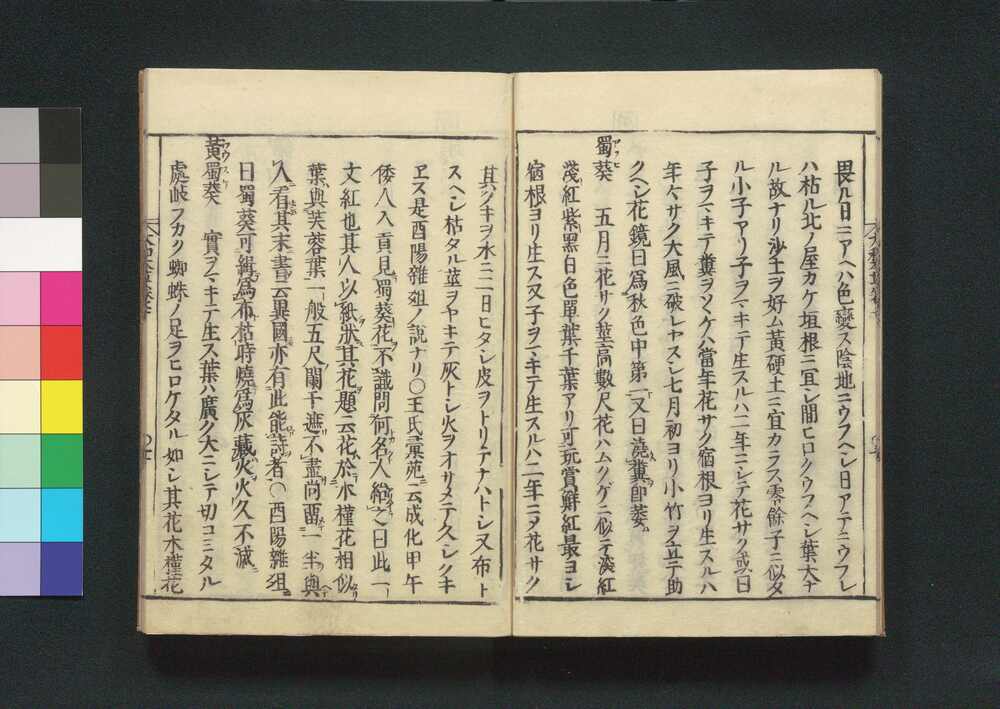 畏ル日ニアヘハ色變ス陰地ニウフヘシ日アテニウフレ
ハ枯ル北ノ屋カケ垣根ニ宜シ間ヒロクウフヘシ葉大ナ
ル故ナリ沙土ヲ好ム黃硬土ニ宜カラス零餘子ニ似タ
ル小子アリ子ヲマキテ生スルハ二年ニシテ花サク或曰
子ヲマキテ糞ヲソヽケハ當年花サク宿根ヨリ生スルハ
年々サク大風ニ破レヤスシ七月初ヨリ小竹ヲ立テ助
クヘシ花鏡曰爲秋色中第一又曰澆糞即萎
蜀葵 五月ニ花サク莖高數尺花ハムクゲニ似テ深紅
淺紅紫黑白色單葉千葉アリ可玩賞鮮紅最ヨシ
宿根ヨリ生ス又子ヲマキテ生スルハ二年ニメ花サク
其ノキヲ水ニ二日ヒタシ皮ヲトリテナハトシ又布ト
スヘシ枯タル莖ヲヤキテ灰トシ火ヲオサメテ久シクキ
エス是酉陽雜俎ノ說ナリ○王氏彙苑云成化甲午
倭人入貢見蜀葵花不識問何名人紿之曰此一
丈紅也其人以紙狀其花題云花於木槿花相似
葉與芙蓉葉一般五尺闌干遮不盡尚留一半與
人看其末書云異國亦有此能詩者○酉陽雜俎
曰蜀葵可緝爲布枯時燒爲灰藏火火久不滅
黃蜀葵 實ヲマキテ生ス葉ハ廣ク大ニシテ切コミタル
處岐フカク蜘蛛ノ足ヲヒロケタル如シ其花木槿花